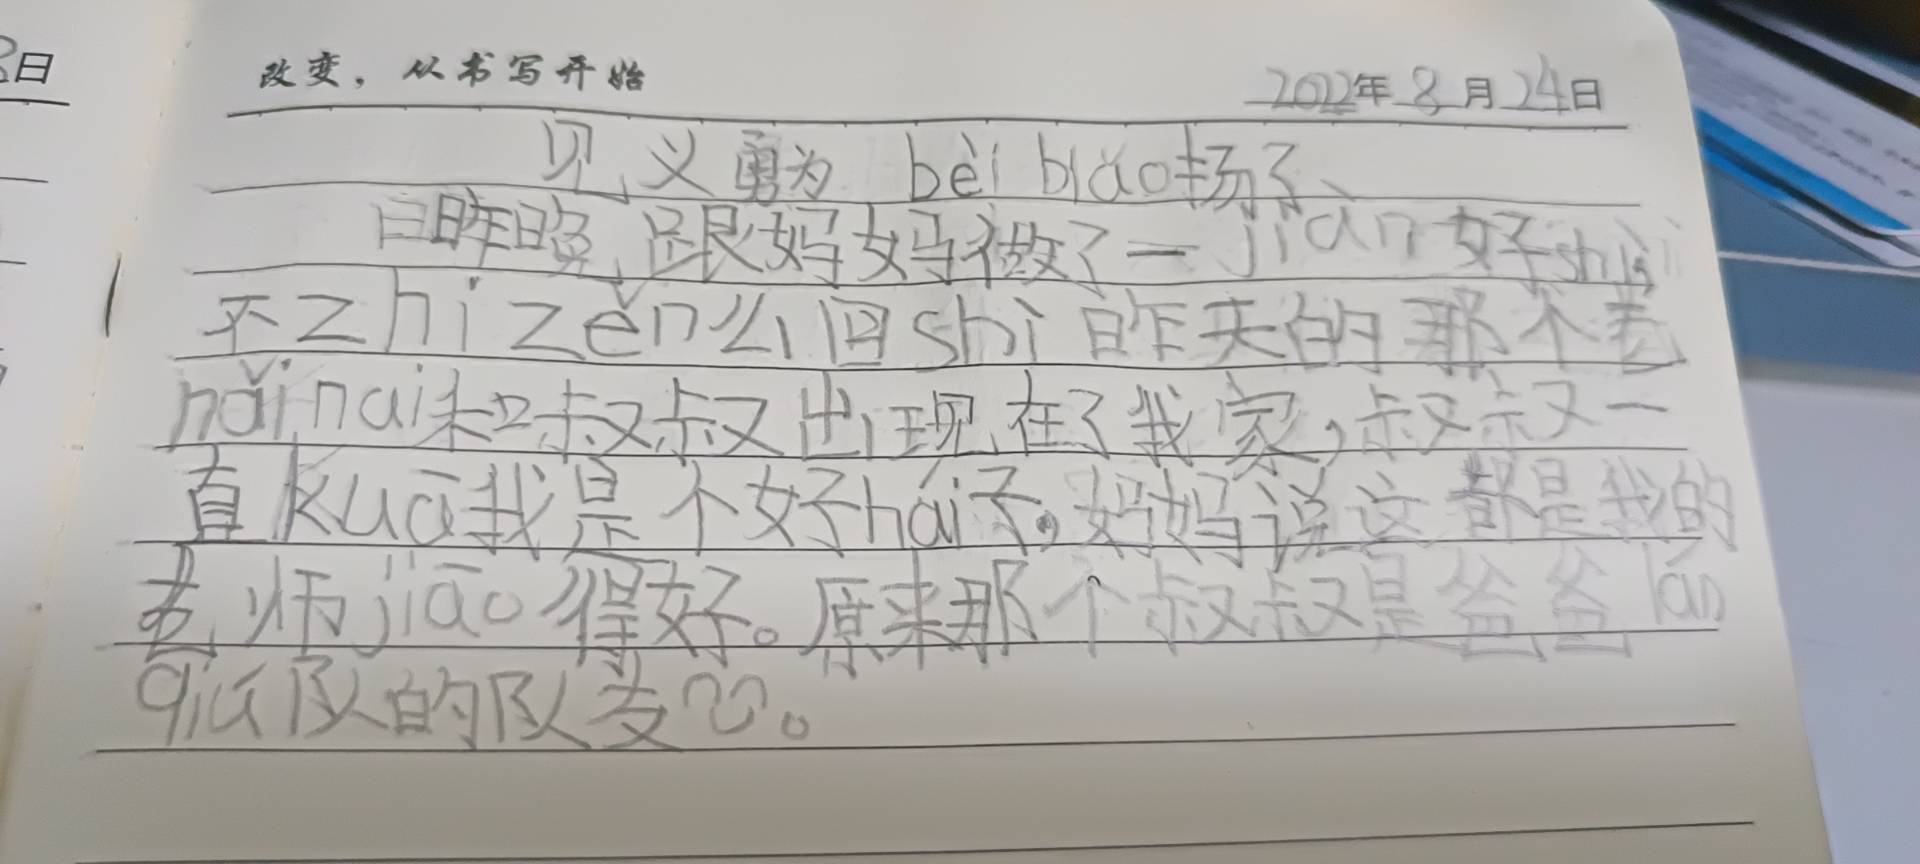 日
改变，从书写开始
2022年8月24日
见义勇为 bèi biǎo扬了
昨晚跟妈妈做了一jiàn好shì
不zhi zěn么但shì昨天的那个老
nǎinai和叔叔出现在了我家，叔叔一
直kuā我是个好hái子。妈妈说这都是我的
老师jiāo得好。原来那个叔叔是爸爸lán
qiú队的队友。